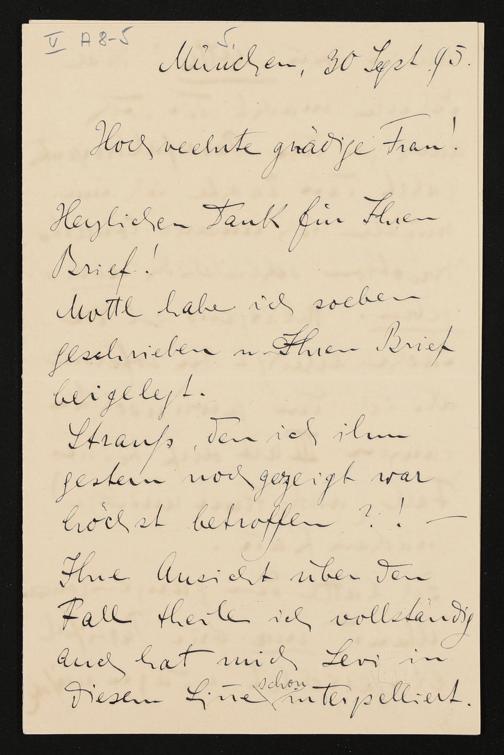 V A 8-5
5
München, 30 Sept. 95.
Hochverehrte gnädige Frau!
Herzlichen Dank für Ihren
Brief!
Mottl habe ich soeben
geschrieben u Ihren Brief
beigelegt.
Strauß, den ich ihm
gestern noch gezeigt war
höchst betroffen?! —
Ihre Ansicht über den
Fall theile ich vollständig
auch hat mich Levi in
schon
diesem Sine interpelliert.